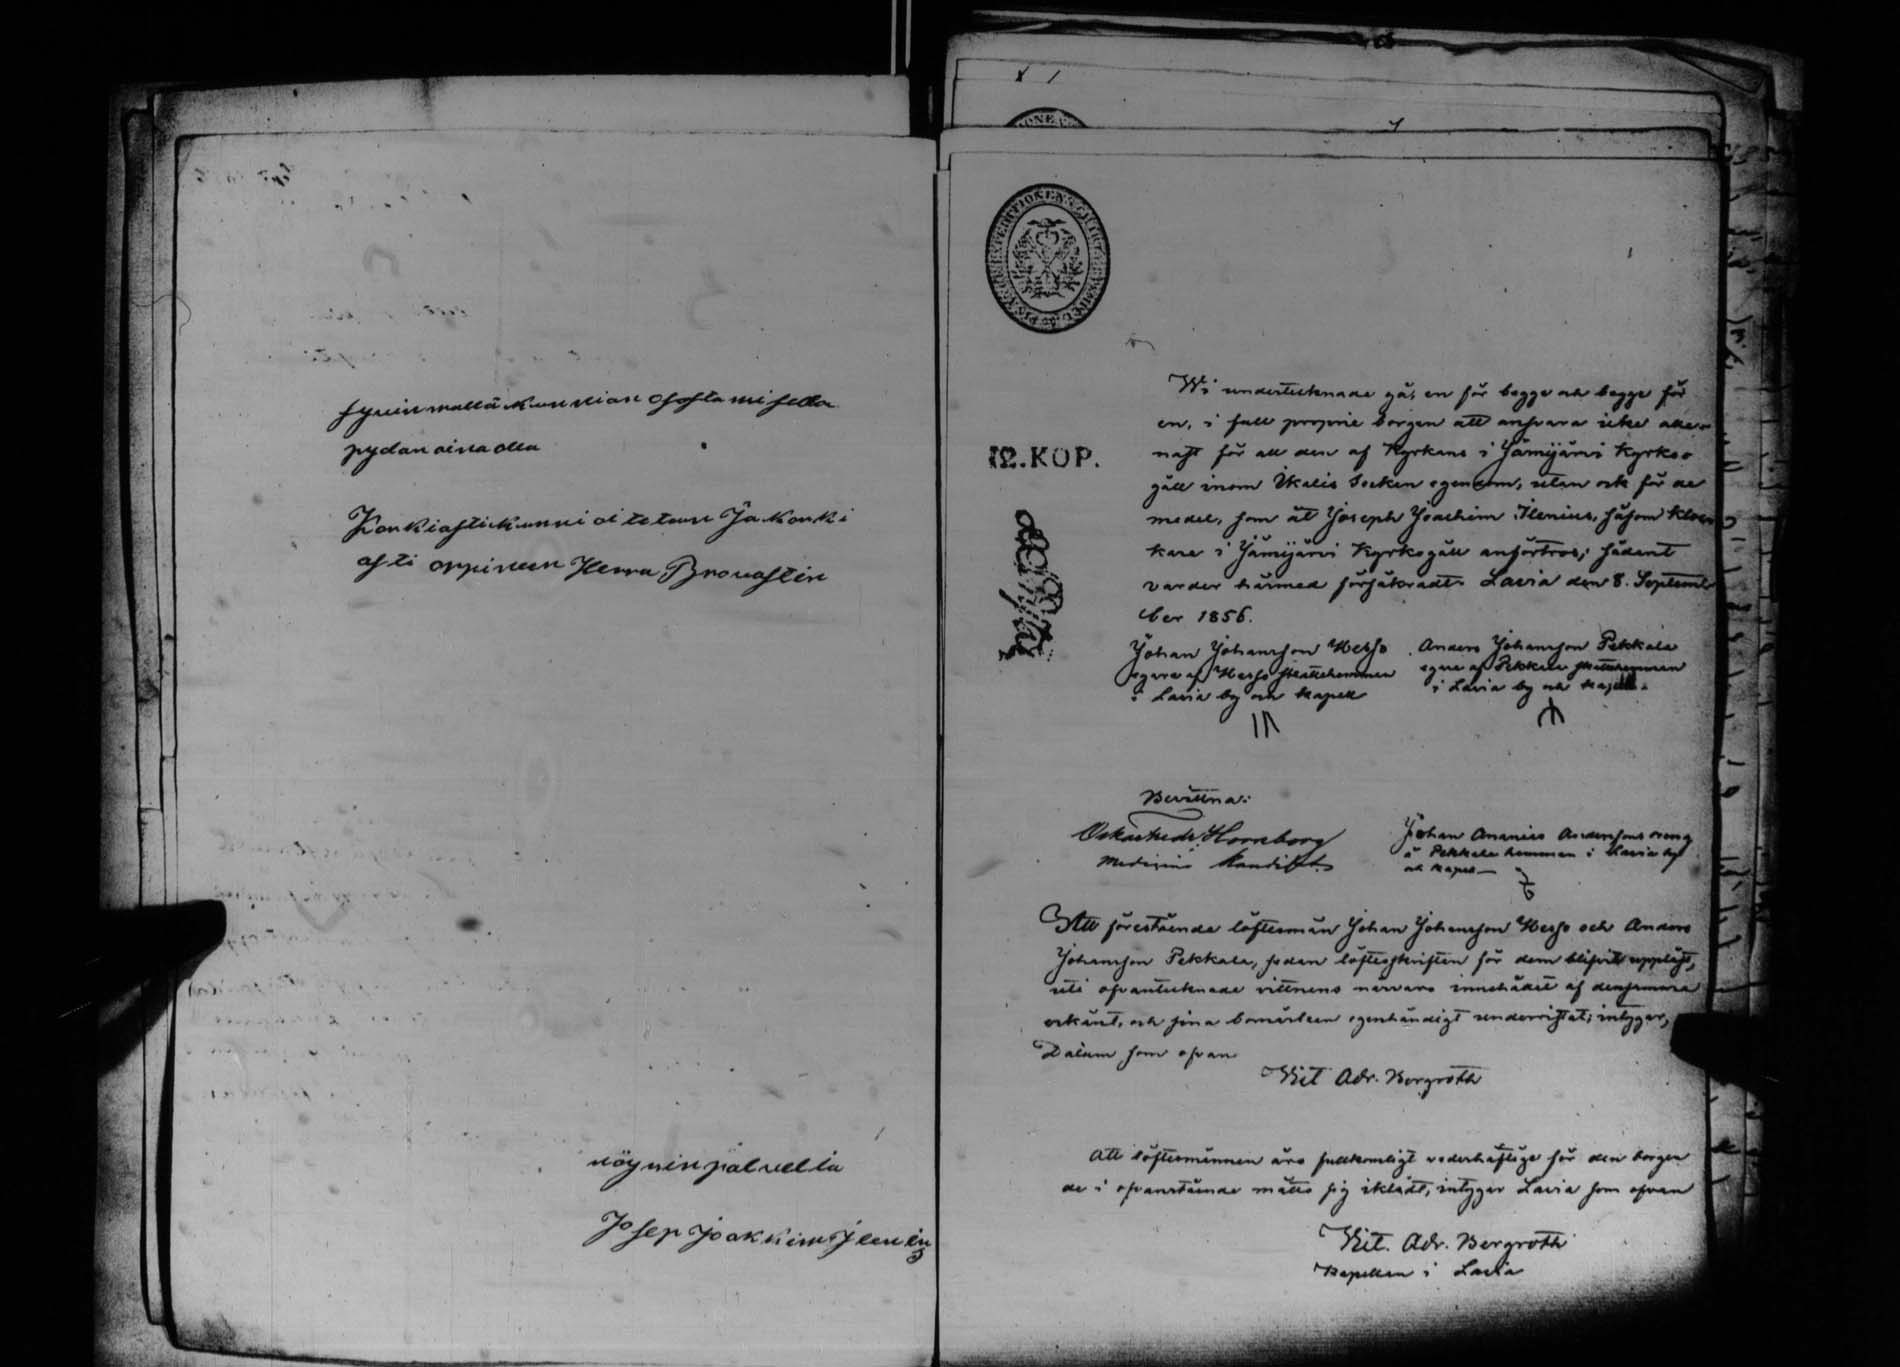 syvin mallä kunnian osostamisella
pydan aina olla
Korkiasti kunnioitetun Ja korki
asti oppineen Herra Provastin
nöyrin palvelia
Josep Joakkim Ilenius
12. KOP.
Wi undertecknade gå, en för begge och begge för
en, i full proprie borgen att ansvara icke alle-
nast för all den af Kyrkans i Jämijärvi Kyrko-
gäll inom Ikalis Socken egendom, utan ock för de
medel, som åt Joseph Joachim Ilenius, såsom kloc-
kare i Jämijärvi Kyrkogäll anförtros; sådant
varder härmed försäkradt. Lavia den 8. Septem-
ber 1856.
Johan Johansson Hesso
egare af Hesso skattehemman
i Lavia by och Kapell
Anders Johansson Pekkala
egare af Pekkala skattehemman
i Lavia by och Kapell.
Bevittna:
Horneborg
Medicine Kandidat.
Johan Ananias Andersson
å Pekkala hemman i Lavia by
och Kapell
Att förestående löftesmän Johan Johansson Hesso och Anders
Johansson Pekkala, sedan löftesskriften för dem blifvit uppläst,
uti ofvantecknade vittnens närvaro innehådet af densamma
erkänt, och sina bomärken egenhändigt underristat; intygar,
Datum som ofvan
Vict. Adr. Bergroth
Att löftesmännen äro fullkomligt vederhäftige för den borgen
de i ofvanstående måtto sig iklädt, intygar Lavia som ofvan
Vict. Adr. Bergroth
Kapellan i Lavia